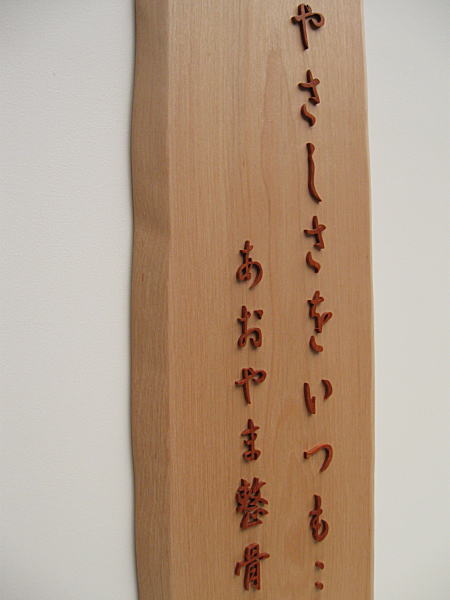 やさしさをいつも…
あおやま整骨